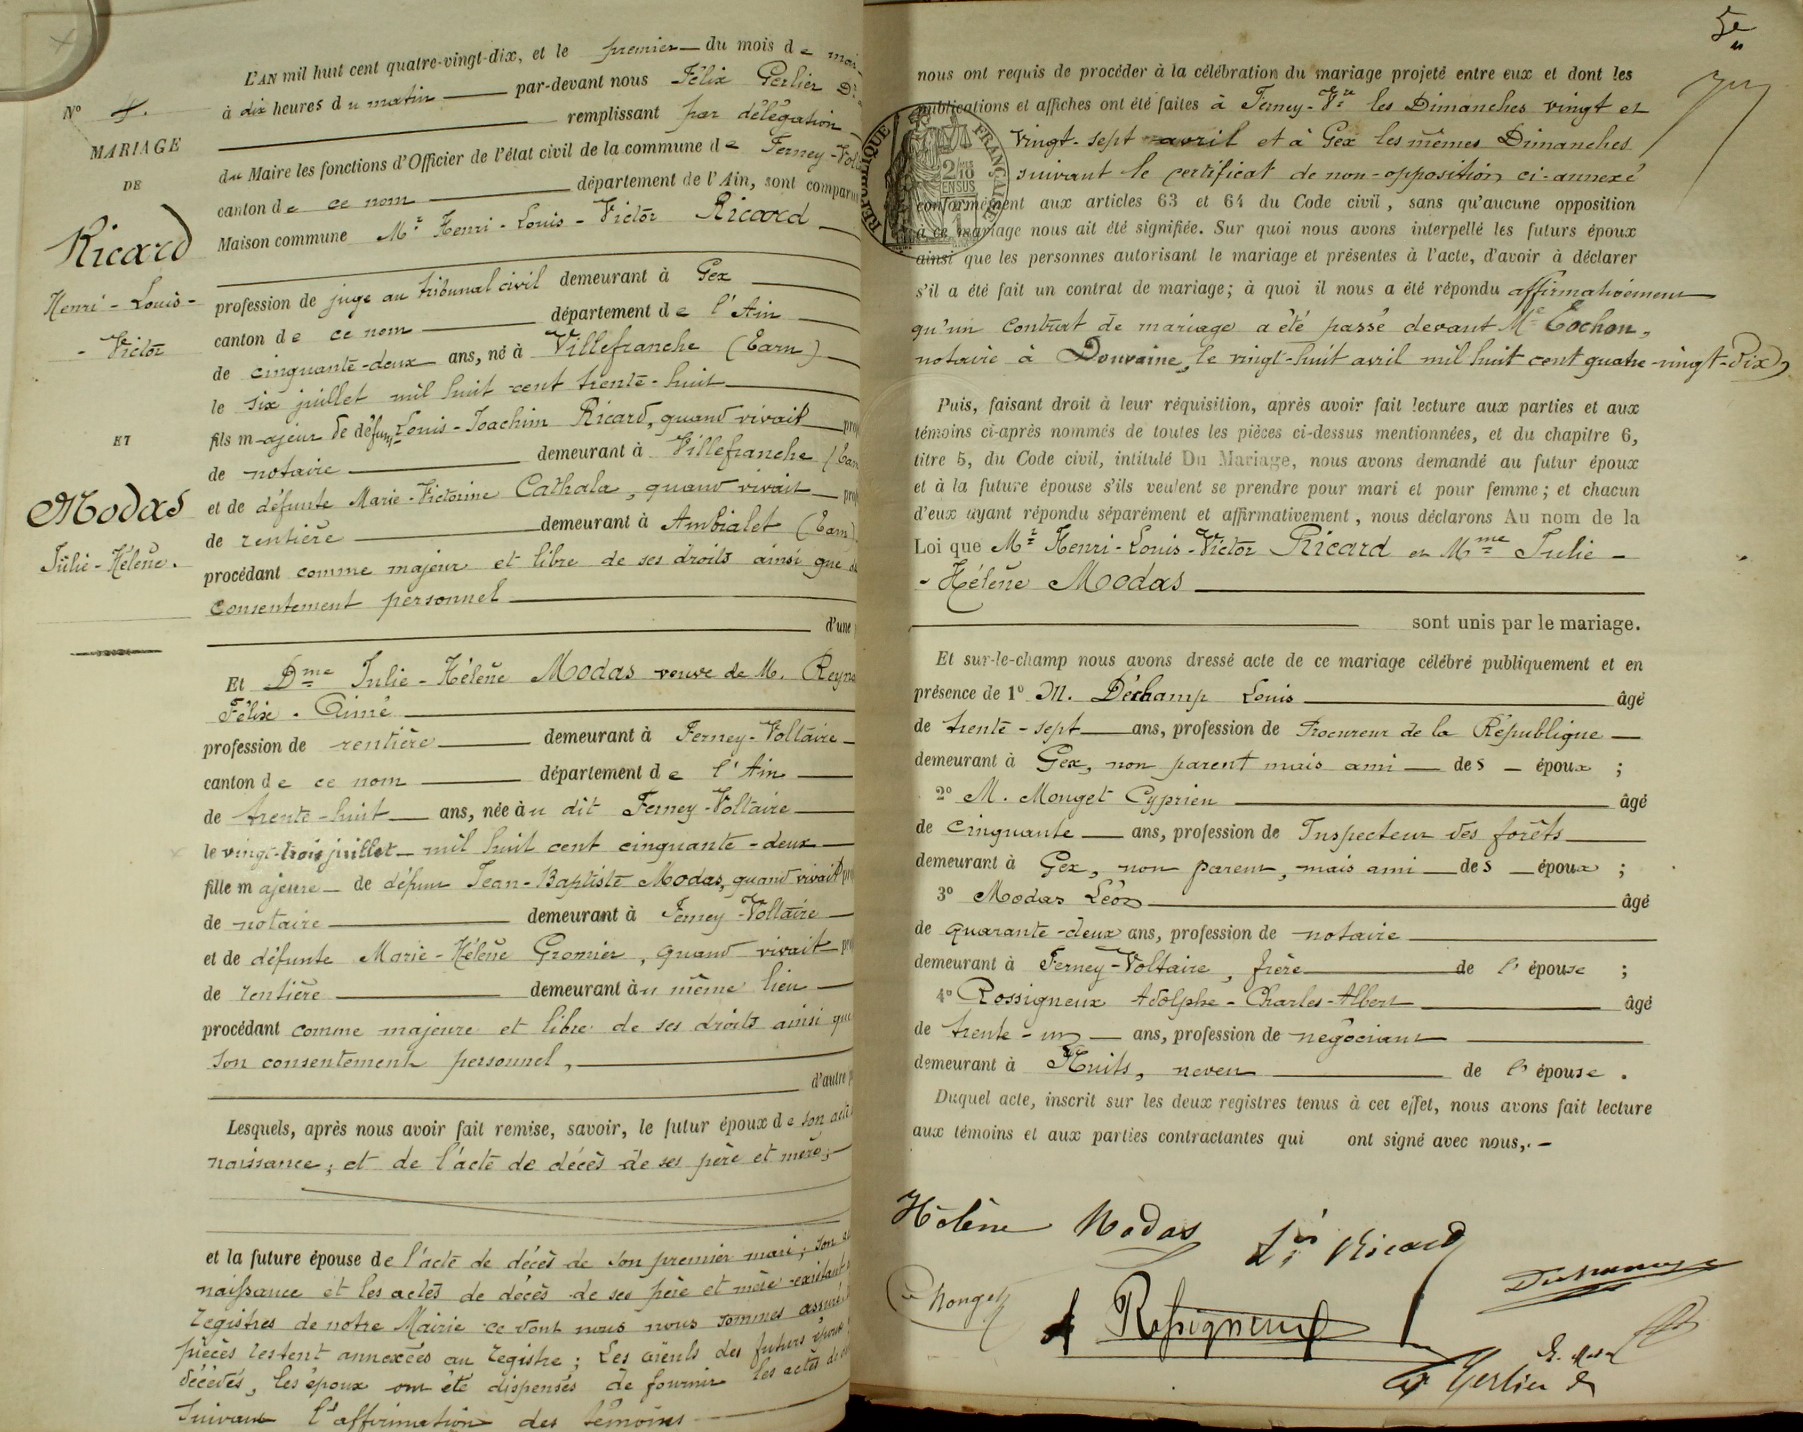 L'AN mil huit cent quatre-vingt-dix, et le premier du mois de mai
à dix heures du matin par-devant nous Félix Gerlier
remplissant par délégation
du Maire les fonctions d'Officier de l'état civil de la commune de Ferney-Vol
canton de ce nom département de l'Ain, sont comparu
Maison commune Mr Henri-Louis-Victor Ricard
profession de juge au tribunal civil demeurant à Gex
canton de ce nom département de l'Ain
de cinquante-deux ans, né à Villefranche (Tarn)
le six juillet mil huit cent trente-huit
fils majeur de défunt Louis-Joachim Ricard, quand vivait
de notaire demeurant à Villefranche (Tar
et de défunte Marie-Victorine Cathala, quand vivait
de rentière demeurant à Ambialet (Tarn)
procédant comme majeur et libre de ses droits ainsi que
consentement personnel
d'une
Et Dme Julie-Hélène Modas veuve de M. Reyn
Félix-Aimé
profession de rentière demeurant à Ferney-Voltaire
canton de ce nom département de l'Ain
de trente-huit ans, née au dit Ferney-Voltaire
le vingt-trois juillet mil huit cent cinquante-deux
fille majeure de défunt Jean-Baptiste Modas, quand vivait
de notaire demeurant à Ferney-Voltaire
et de défunte Marie-Hélène Gromier, quand vivait
de rentière demeurant au même lieu
procédant comme majeure et libre de ses droits ainsi que
son consentement personnel,
d'autre
Lesquels, après nous avoir fait remise, savoir, le futur époux de son acte
naissance; et de l'acte de décès de ses père et mère;
et la future épouse de l'acte de décès de son premier mari; son
naissance et les actes de décès de ses père et mère existant
registres de notre Mairie ce dont nous nous sommes assuré
pièces restent annexées au registre; Les aïeuls des futurs époux
décédés, les époux ont été dispensés de fournir les actes de
suivant l'affirmation des témoins
No 4.
MARIAGE
DE
Ricard
Henri-Louis-
-Victor
ET
Modas
Julie-Hélène.
5e
nous ont requis de procéder à la célébration du mariage projeté entre eux et dont les
publications et affiches ont été faites à Ferney-Vre les Dimanches vingt et
vingt-sept avril et à Gex les mêmes Dimanches
suivant le certificat de non-opposition ci-annexé
conformément aux articles 63 et 64 du Code civil, sans qu'aucune opposition
à ce mariage nous ait été signifiée. Sur quoi nous avons interpellé les futurs époux
ainsi que les personnes autorisant le mariage et présentes à l'acte, d'avoir à déclarer
s'il a été fait un contrat de mariage; à quoi il nous a été répondu affirmativement
qu'un contrat de mariage a été passé devant Me Cochon,
notaire à Douvaine, le vingt-huit avril mil huit cent quatre-vingt-Dix
Puis, faisant droit à leur réquisition, après avoir fait lecture aux parties et aux
témoins ci-après nommés de toutes les pièces ci-dessus mentionnées, et du chapitre 6,
titre 5, du Code civil, intitulé Du Mariage, nous avons demandé au futur époux
et à la future épouse s'ils veulent se prendre pour mari et pour femme; et chacun
d'eux ayant répondu séparément et affirmativement, nous déclarons Au nom de la
Loi que Mr Henri-Louis-Victor Ricard et Mme Julie-
-Hélène Modas
sont unis par le mariage.
Et sur-le-champ nous avons dressé acte de ce mariage célébré publiquement et en
présence de 1o M. Déchamp Louis âgé
de trente-sept ans, profession de Procureur de la République
demeurant à Gex, non parent mais ami des époux ;
2o M. Monget Cyprien âgé
de cinquante ans, profession de Inspecteur des forêts
demeurant à Gex, non parent, mais ami des époux ;
3o Modas Léon âgé
de quarante-deux ans, profession de notaire
demeurant à Ferney-Voltaire, frère de l'épouse ;
4o Rossigneux Adolphe-Charles-Albert âgé
de trente-un ans, profession de négociant
demeurant à Nuits, neveu de l'épouse .
Duquel acte, inscrit sur les deux registres tenus à cet effet, nous avons fait lecture
aux témoins et aux parties contractantes qui ont signé avec nous,.-
Hélène Modas Ricard
Monget
A Rossigneux
Gerlier
RÉPUBLIQUE FRANÇAISE
2/10 EN SUS